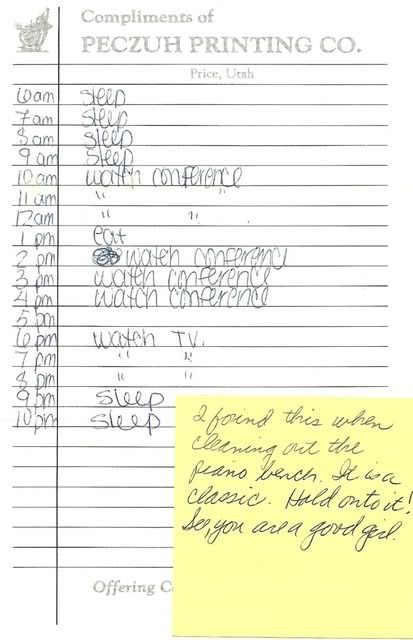 Compliments of
PECZUH PRINTING CO.
Price, Utah
6am sleep
7am sleep
8am sleep
9am sleep
10am watch conference
11am " "
12am " "
1pm eat
2pm watch conference
3pm watch conference
4pm watch conference
5pm
6pm watch TV.
7pm " "
8pm " "
9pm sleep
10pm sleep
I found this when
cleaning out the
piano bench. It is a
classic. Hold onto it!
See, you are a good girl.
Offering C